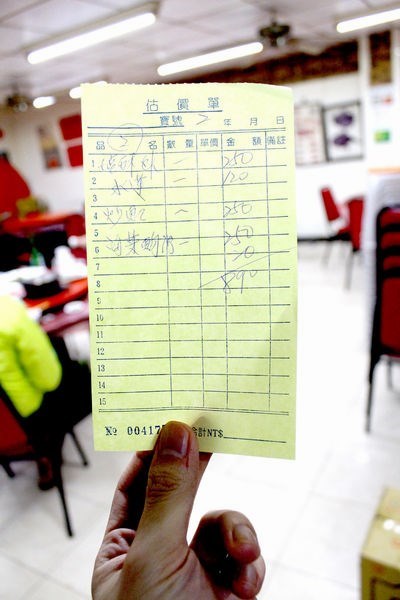 估價單
寶號 2 年 月 日
品 2 名 數量 單價 金額 備註
1 一 250
2 一 120
3
4 一 250
5 250
6 一 20
7
8 890
9
10
11
12
13
14
15
№ 00417 合計NT$